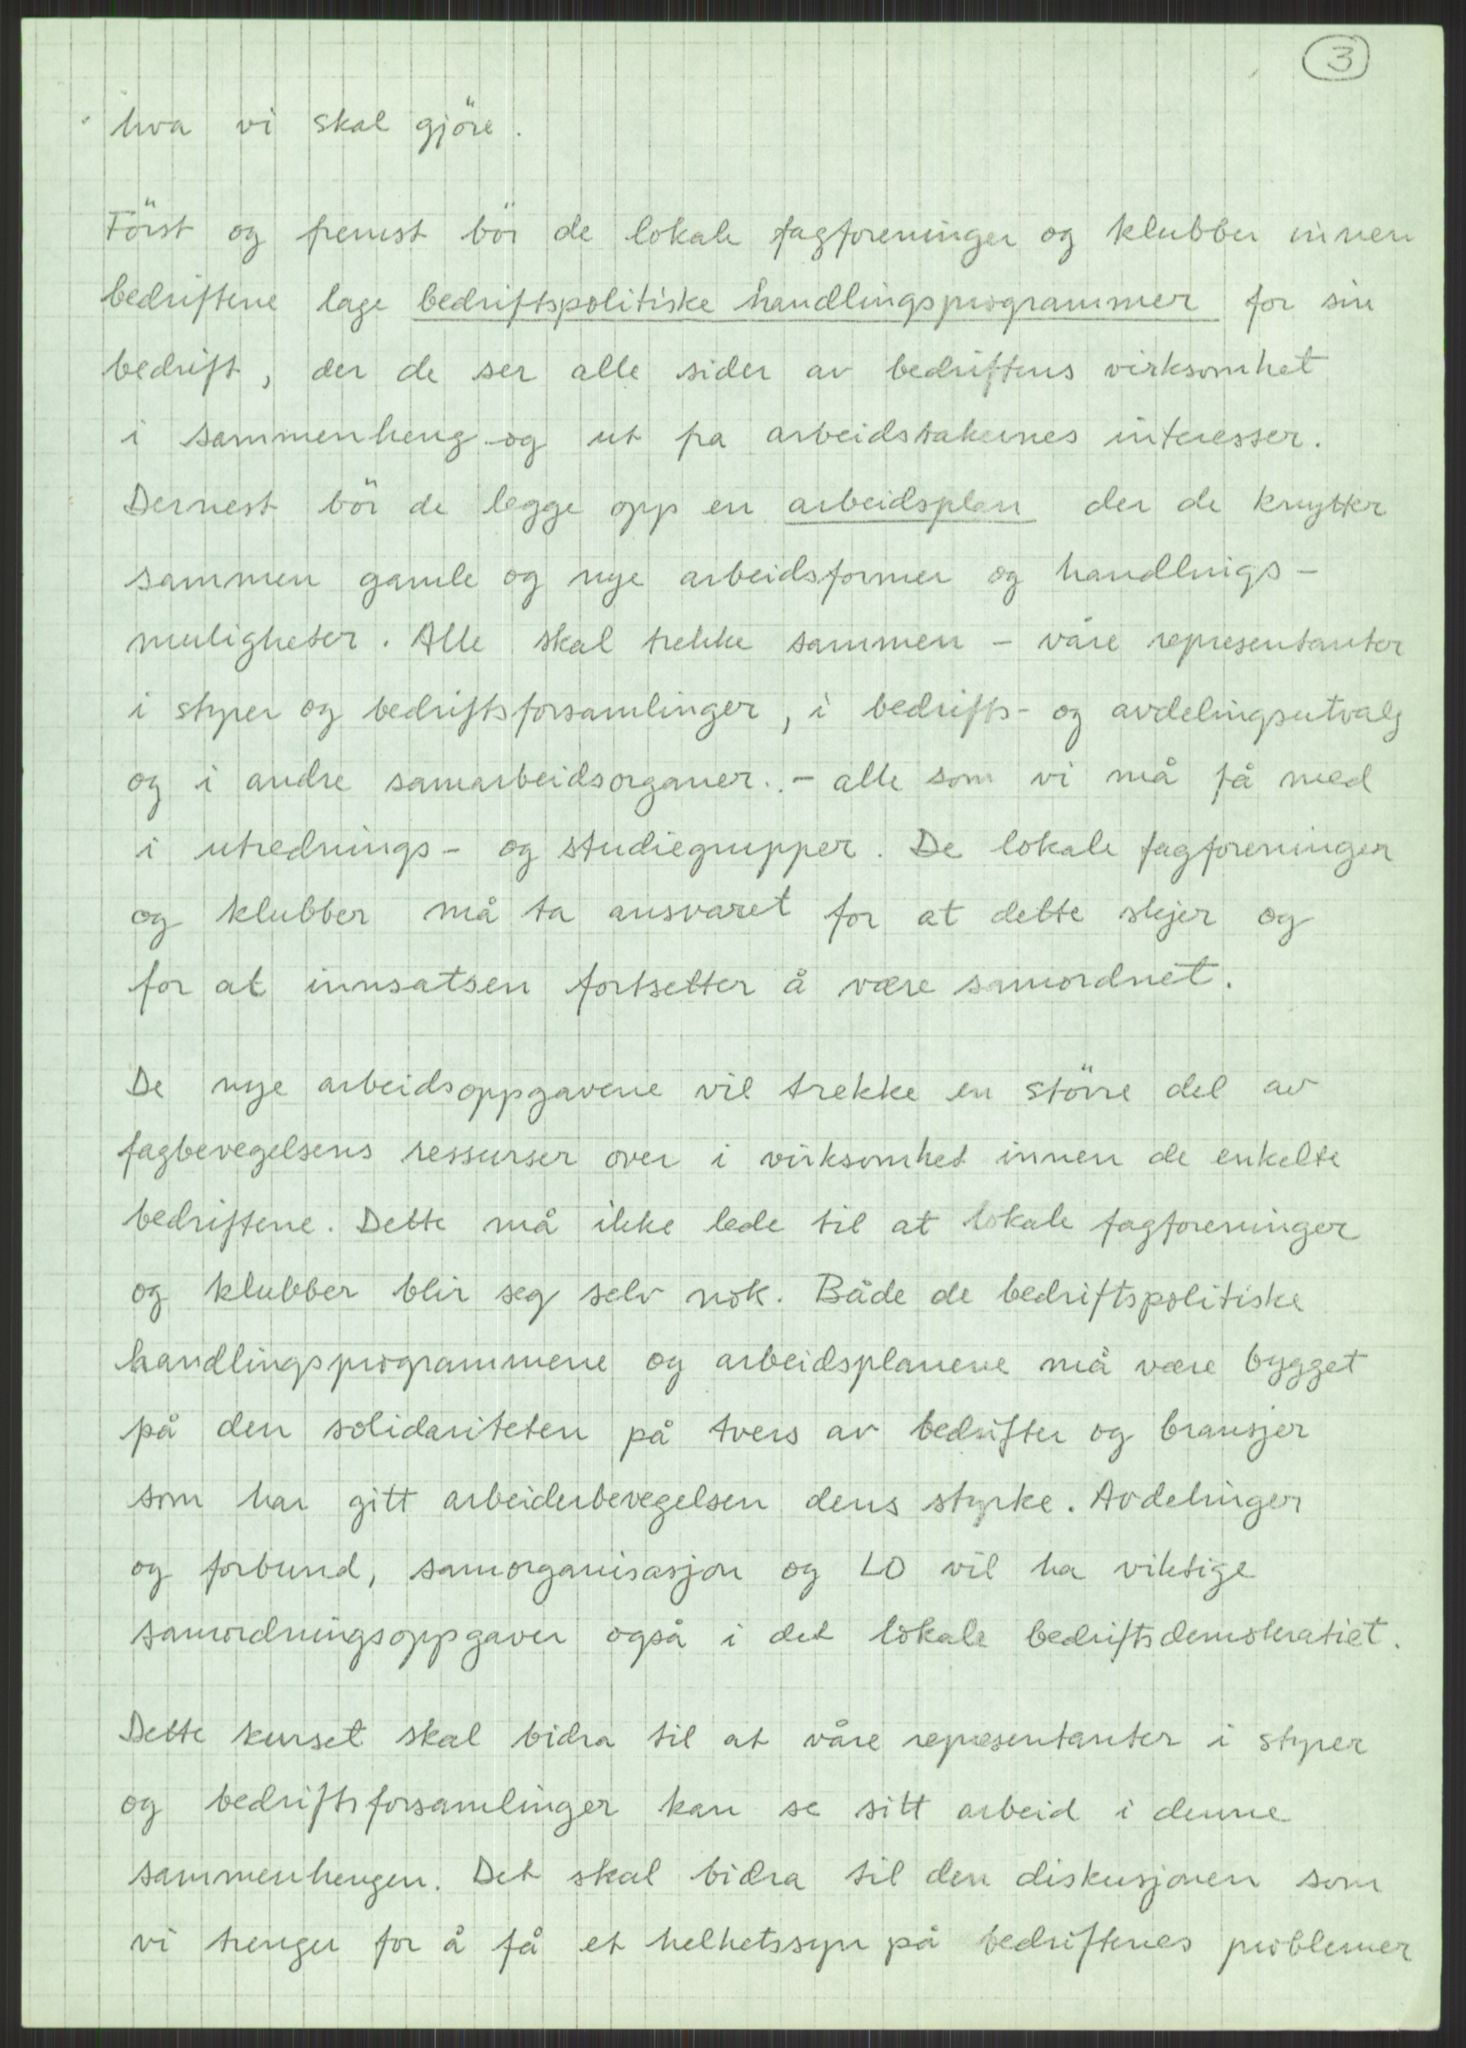 3
hva vi skal gjöre.
Först og fremst bör de lokale fagforeninger og klubber innen
bedriftene lage bedriftspolitiske handlingsprogrammer for sin
bedrift, der de ser alle sider av bedriftens virksomhet
i sammenheng og ut fra arbeidstakernes interesser.
Dernest bör de legge opp en arbeidsplan der de knytter
sammen gamle og nye arbeidsformer og handlings-
muligheter. Alle skal trekke sammen - våre representanter
i styrer og bedriftsforsamlinger, i bedrifts- og avdelingsutvalg
og i andre samarbeidsorganer. - alle som vi må få med
i utrednings- og studiegrupper. De lokale fagforeninger
og klubber må ta ansvaret for at dette skjer og
for at innsatsen fortsetter å være samordnet.
De nye arbeidsoppgavene vil trekke en större del av
fagbevegelsens ressurser over i virksomhet innen de enkelte
bedriftene. Dette må ikke lede til at lokale fagforeninger
og klubber blir seg selv nok. Både de bedriftspolitiske
handlingsprogrammene og arbeidsplanene må være bygget
på den solidariteten på tvers av bedrifter og bransjer
som har gitt arbeiderbevegelsen dens styrke. Avdelinger
og forbund, samorganisasjon og LO vil ha viktige
samordningsoppgaver også i det lokale bedriftsdemokratiet.
Dette kurset skal bidra til at våre representanter i styrer
og bedriftsforsamlinger kan se sitt arbeid i denne
sammenhengen. Det skal bidra til den diskusjonen som
vi trenger for å få et helhetssyn på bedriftenes problemer